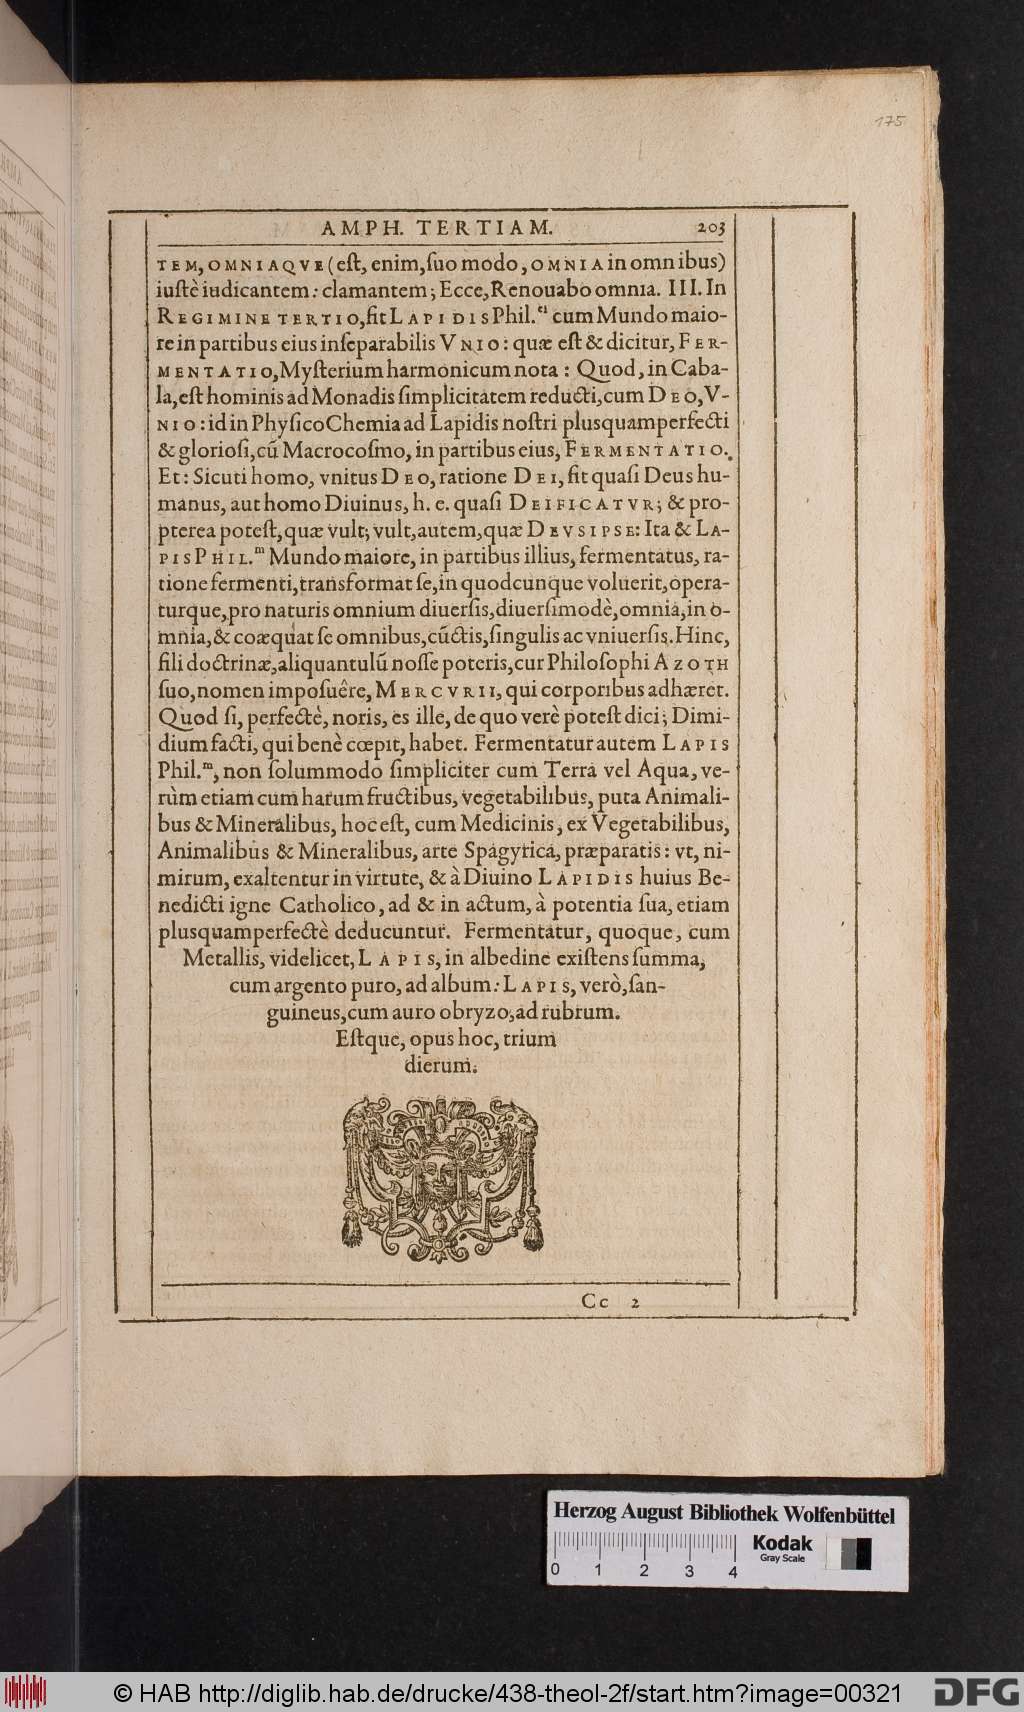 175.
AMPH. TERTIAM. 203
TEM, OMNIAQVE (eſt, enim, ſuo modo, OMNIA in omnibus)
iuſtè iudicantem: clamantem; Ecce, Renouabo omnia. III. In
REGIMINE TERTIO, fit LAPIDIS Phil.ci cum Mundo maio-
re in partibus eius inſeparabilis VNIO: quæ eſt & dicitur, FER-
MENTATIO, Myſterium harmonicum nota: Quod, in Caba-
la, eſt hominis ad Monadis ſimplicitatem reducti, cum DEO, V-
NIO: id in PhyſicoChemia ad Lapidis noſtri plusquamperfecti
& glorioſi, cũ Macrocoſmo, in partibus eius, FERMENTATIO.
Et: Sicuti homo, vnitus DEO, ratione DEI, fit quaſi Deus hu-
manus, aut homo Diuinus, h. e. quaſi DEIFICATVR; & pro-
pterea poteſt, quæ vult; vult, autem, quæ DEVS IPSE: Ita & LA-
PIS PHIL.m Mundo maiore, in partibus illius, fermentatus, ra-
tione fermenti, transformat ſe, in quodcunque voluerit, opera-
turque, pro naturis omnium diuerſis, diuerſimodè, omnia, in o-
mnia, & coæquat ſe omnibus, cũctis, ſingulis ac vniuerſis. Hinc,
fili doctrinæ, aliquantulũ noſſe poteris, cur Philoſophi AZOTH
ſuo, nomen impoſuêre, MERCVRII, qui corporibus adhæret.
Quod ſi, perfectè, noris, es ille, de quo verè poteſt dici; Dimi-
dium facti, qui benè cœpit, habet. Fermentatur autem LAPIS
Phil.m, non ſolummodo ſimpliciter cum Terra vel Aqua, ve-
rùm etiam cum harum fructibus, vegetabilibus, puta Animali-
bus & Mineralibus, hoc eſt, cum Medicinis, ex Vegetabilibus,
Animalibus & Mineralibus, arte Spagyrica, præparatis: vt, ni-
mirum, exaltentur in virtute, & à Diuino LAPIDIS huius Be-
nedicti igne Catholico, ad & in actum, à potentia ſua, etiam
plusquamperfectè deducuntur. Fermentatur, quoque, cum
Metallis, videlicet, LAPIS, in albedine exiſtens ſumma,
cum argento puro, ad album: LAPIS, verò, ſan-
guineus, cum auro obryzo, ad rubrum.
Eſtque, opus hoc, trium
dierum.
Cc 2
Herzog August Bibliothek Wolfenbüttel
Kodak
Gray Scale
0 1 2 3 4
© HAB http://diglib.hab.de/drucke/438-theol-2f/start.htm?image=00321
DFG